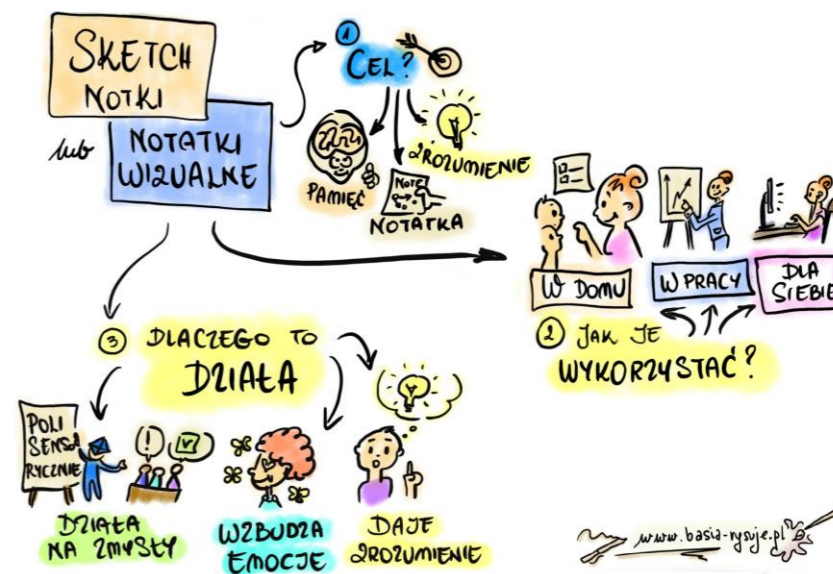 SKETCH
NOTKI
lub
NOTATKI
WIZUALNE
1
CEL?
PAMIĘĆ
Note
NOTATKA
ZROZUMIENIE
W DOMU
W PRACY
DLA
SIEBIE
2 JAK JE
WYKORZYSTAĆ?
3 DLACZEGO TO
DZIAŁA
POLI
SENSO
RYCZNIE
!
DZIAŁA
NA ZMYSŁY
WZBUDZA
EMOCJE
DAJE
ZROZUMIENIE
www.basia-rysuje.pl